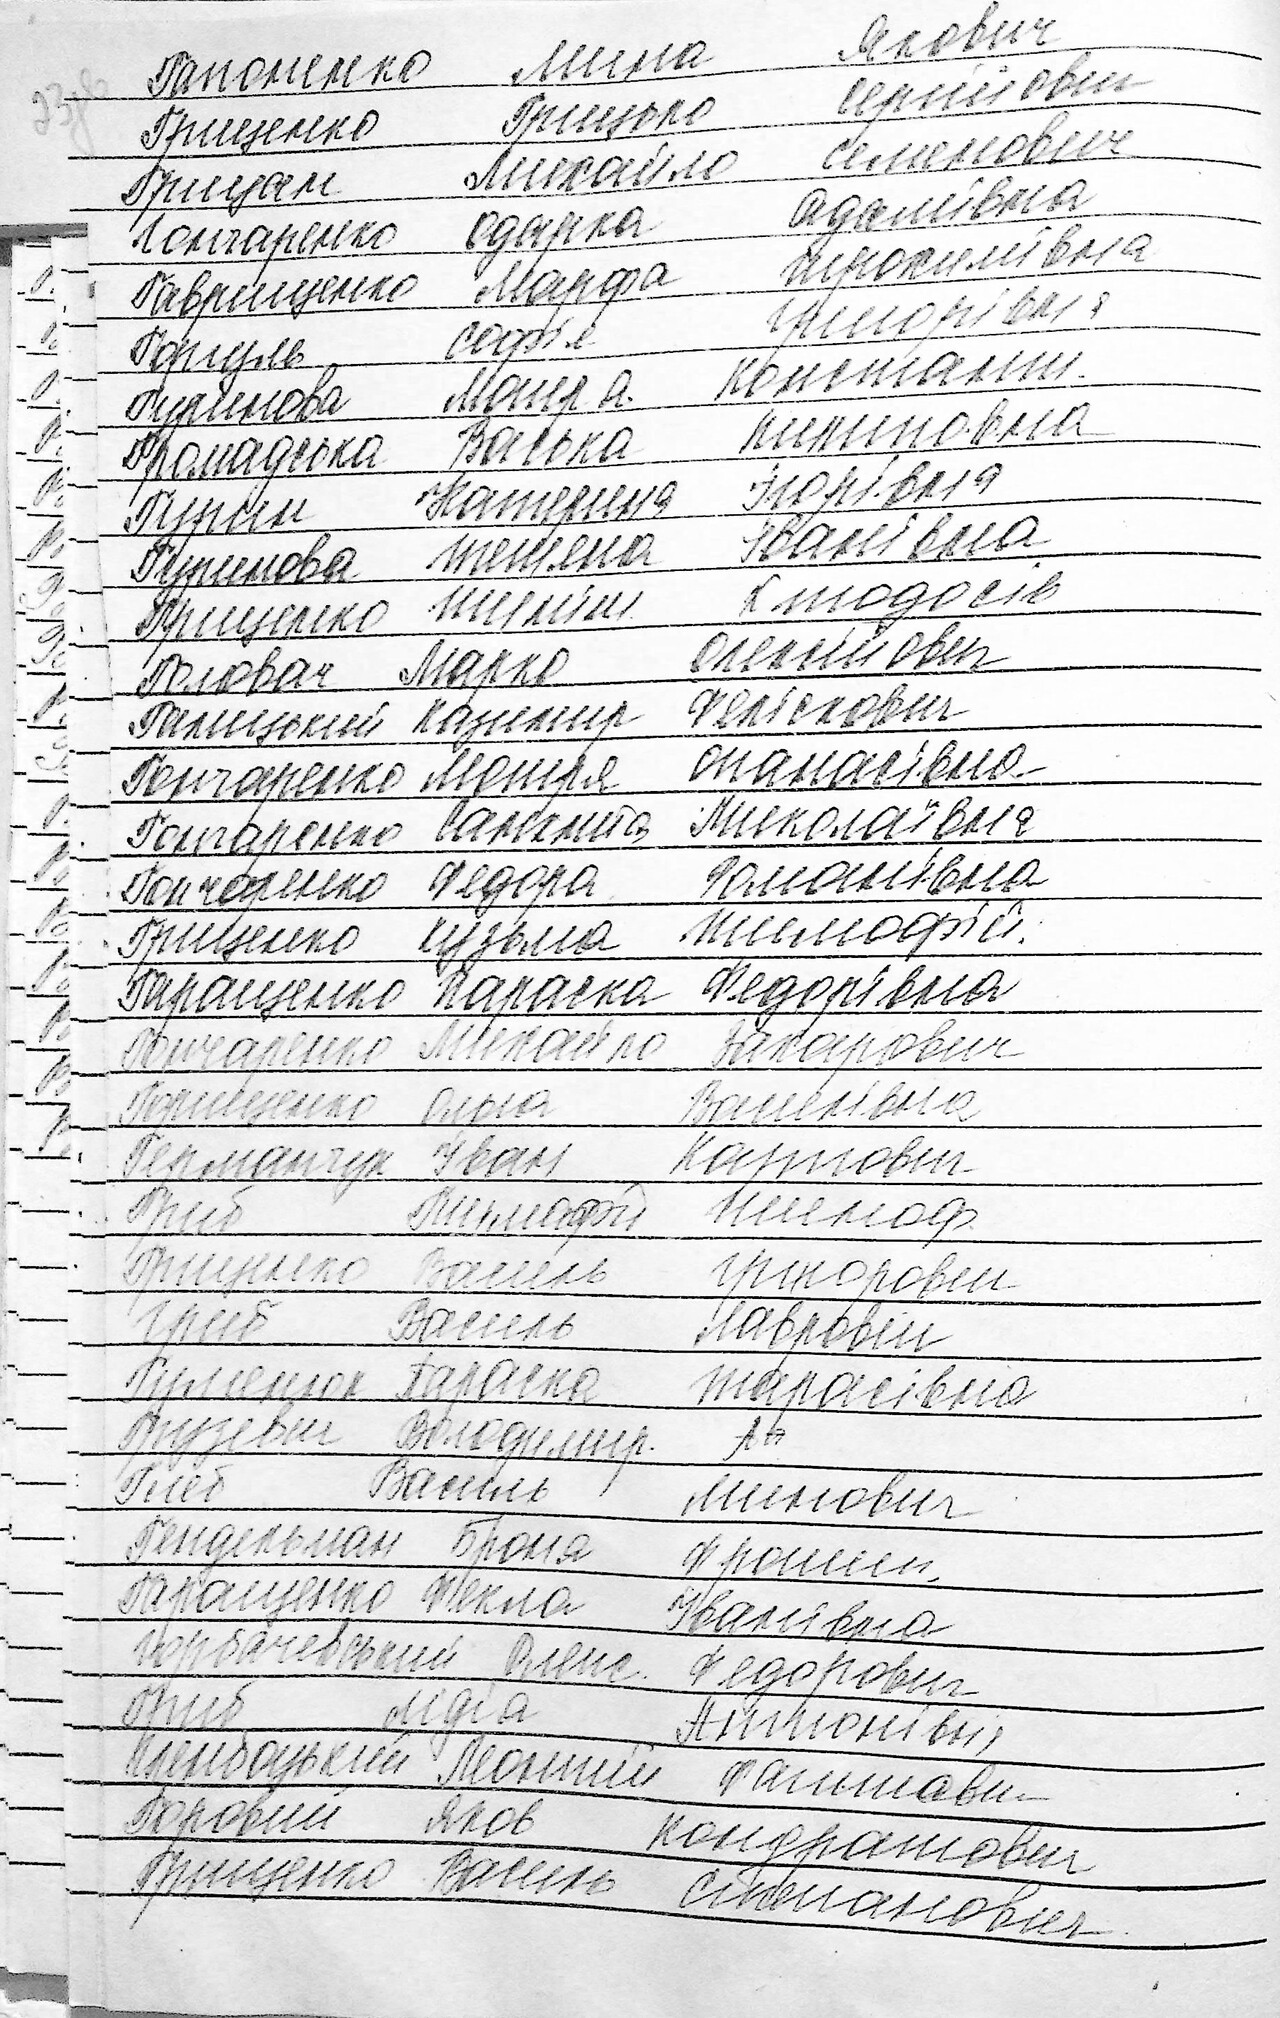 Гапоненко Мина Якович
Грищенко Грицько Сергійович
Грицан Михайло Семенович
Гончаренко Одарка Адамівна
Гаврищенко Марфа Прокопівна
Софія Григорівна
Гуринова Мотря Констант.
Громадська Васька
Гурин Катерина Ігорівна
Гуринова Тетяна Іванівна
Грищенко
Головач Марко Олексійович
Галицький Казимир
Гончаренко Мотря Опанасівна
Гончаренко Миколаївна
Гончаренко Федора Романівна
Грищенко Кузьма Тимофій.
Гаращенко Параска Федорівна
Гончаренко Михайло Захарович
Горищенко Ольга Василівна
Германчук Іван Карпович
Гриб Тимофій
Грищенко Василь Григорович
Гриб Василь Лаврович
Гуменюк Параска Тарасівна
Гузевич Володимир.
Глеб Василь Минович
Гендельман Броня
Гаращенко Фекла Іванівна
Горбачевський Олекс. Федорович
Гриб Лідія Антонівна
Леонтій
Горовий Яков Кондратович
Грищенко Василь Степанович